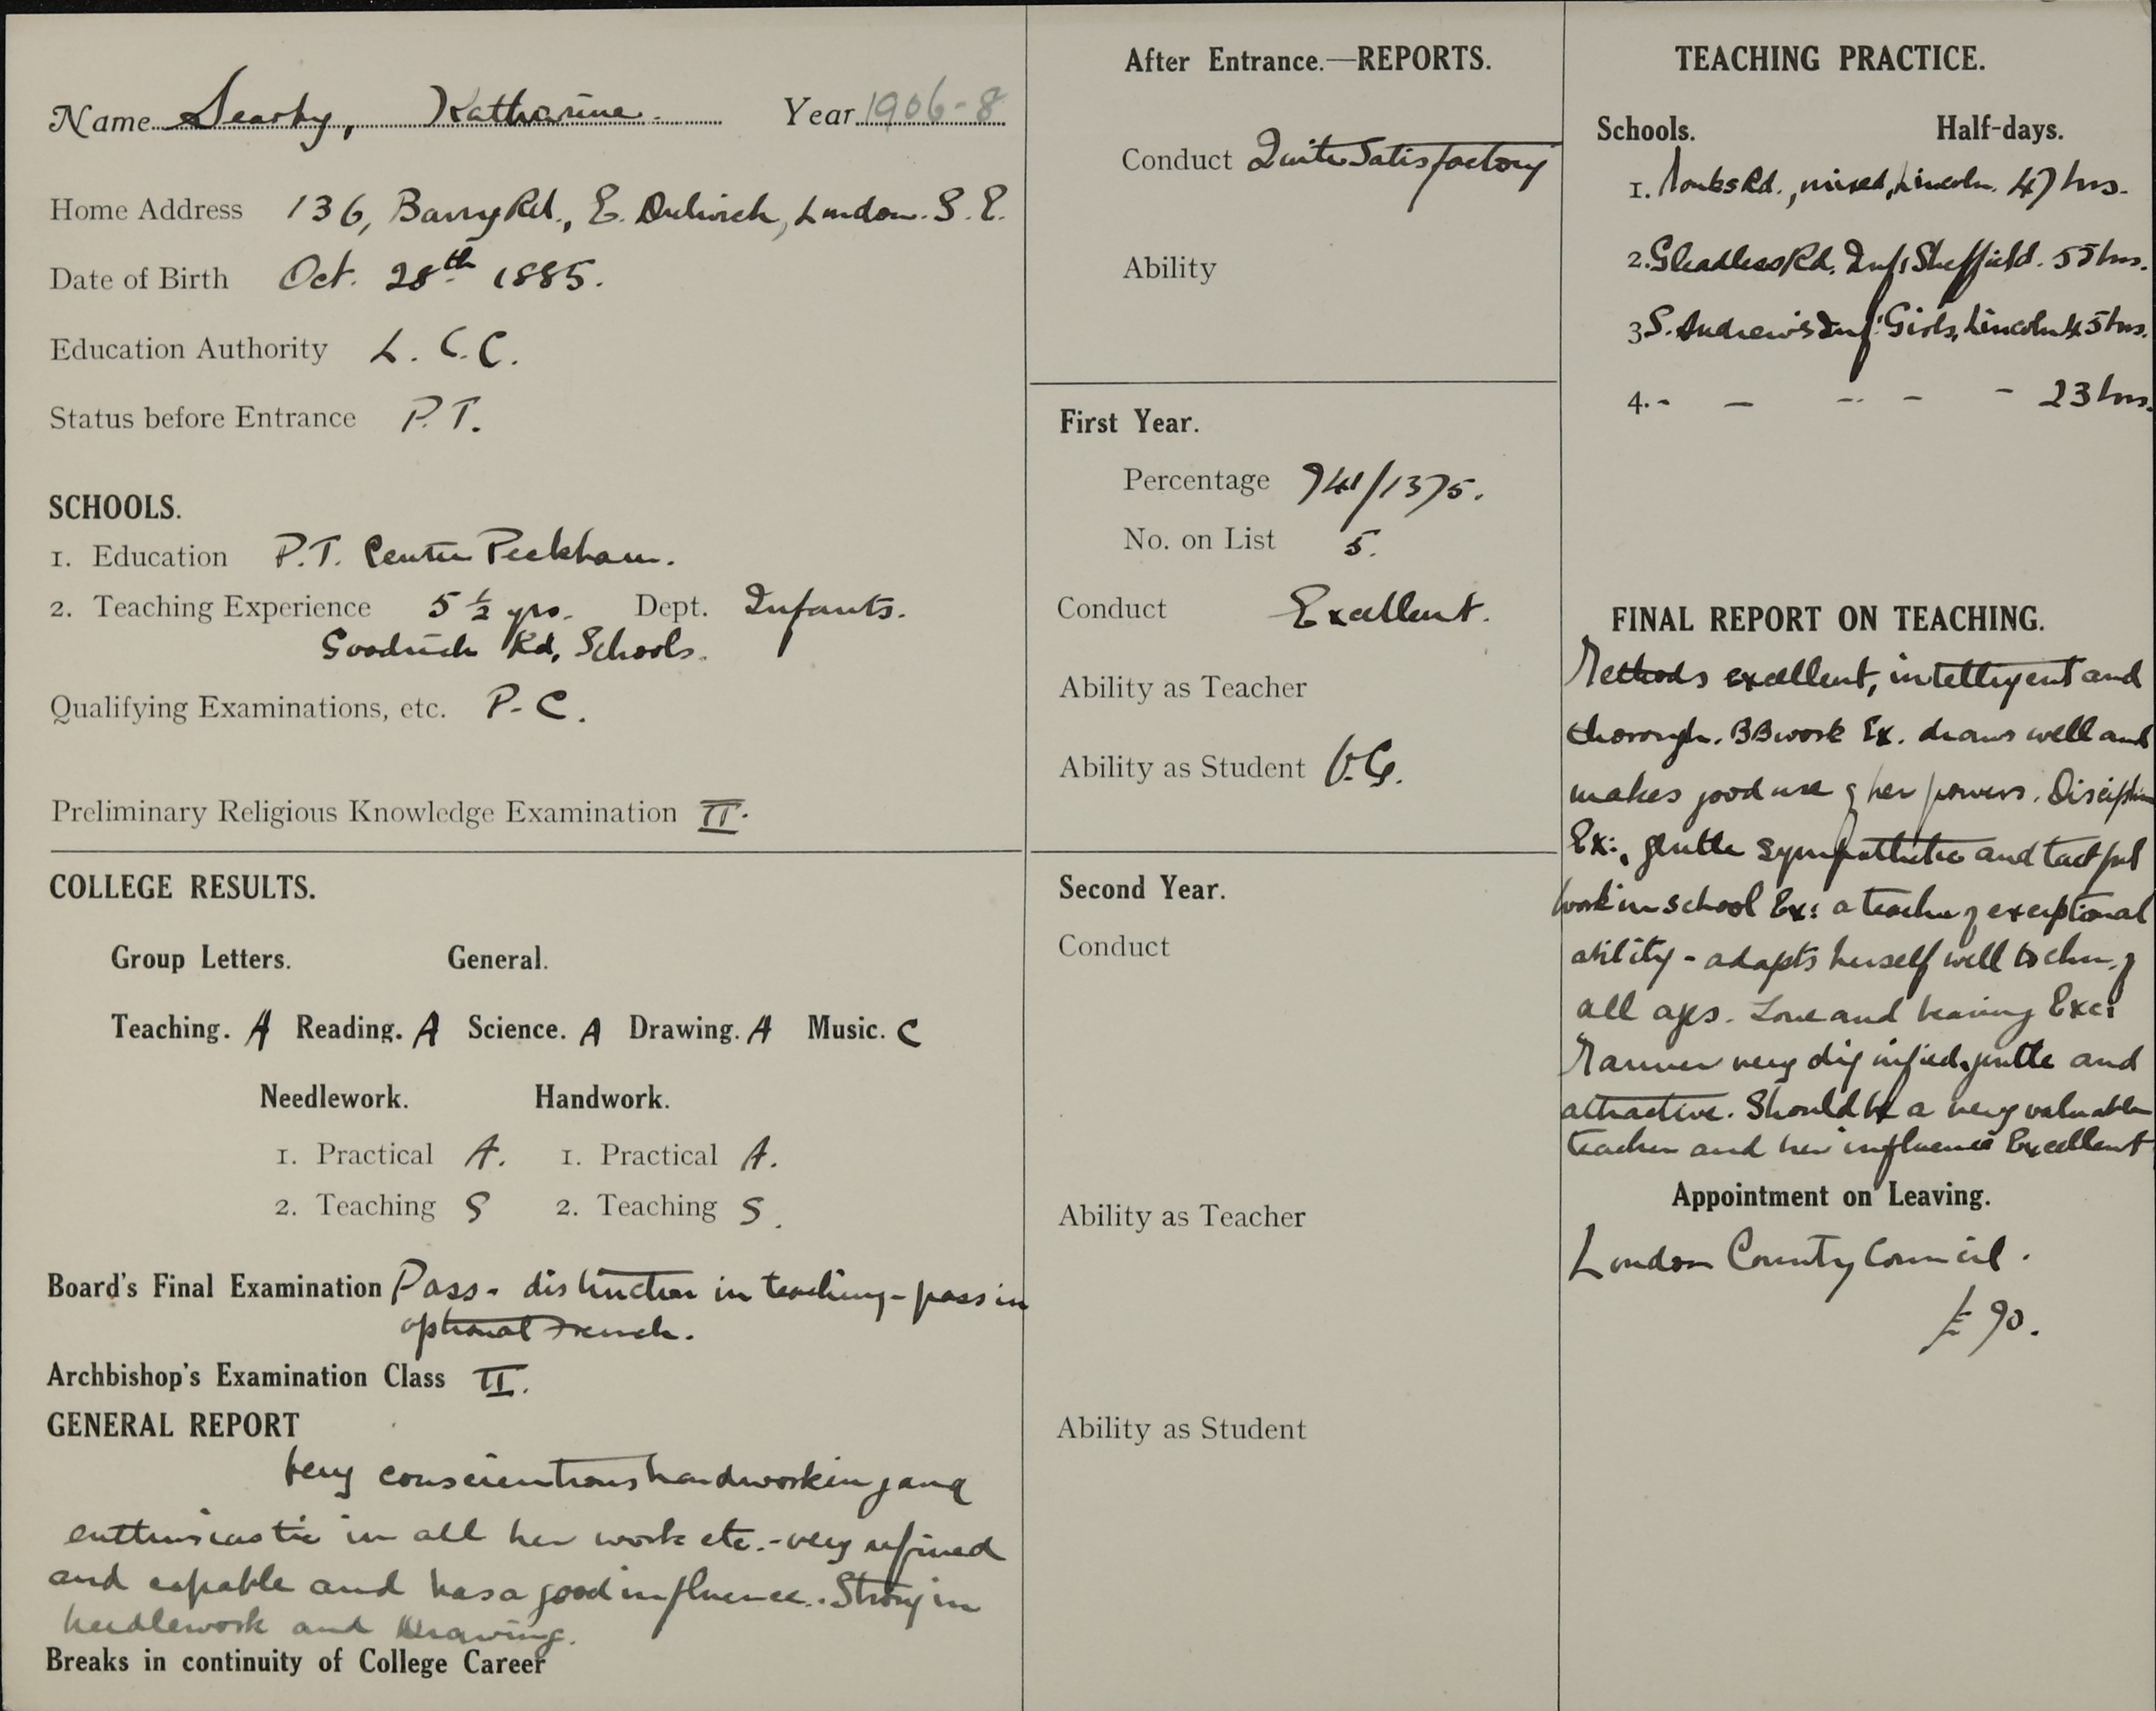 Name Searby, Katharine. Year 1906-8
Home Address 136, Barry Rd., E. Dulwich, London. S.E.
Date of Birth Oct. 28th 1885.
Education Authority L.C.C.
Status before Entrance P.T.
SCHOOLS.
1. Education P.T. Centre Peckham.
2. Teaching Experience 5½ yrs. Dept. Infants.
Goodrich Rd, Schools.
Qualifying Examinations, etc. P-C.
Preliminary Religious Knowledge Examination II.
COLLEGE RESULTS.
Group Letters. General.
Teaching. A Reading. A Science. A Drawing. A Music. C
Needlework. Handwork.
1. Practical A. 1. Practical A.
2. Teaching S 2. Teaching S.
Board's Final Examination Pass - distinction in teaching - pass in
optional French.
Archbishop's Examination Class II.
GENERAL REPORT
Very conscientious hardworking and
enthusiastic in all her work etc. - very refined
and capable and has a good influence. Strong in
needlework and Drawing.
Breaks in continuity of College Career
After Entrance.—REPORTS.
Conduct Quite Satisfactory
Ability
First Year.
Percentage 941/1375.
No. on List 5.
Conduct Excellent.
Ability as Teacher
Ability as Student V.G.
Second Year.
Conduct
Ability as Teacher
Ability as Student
TEACHING PRACTICE.
Schools. Half-days.
1. Monks Rd., mixed, Lincoln. 47 hrs.
2. Gleadless Rd. Inf: Sheffield. 55 hrs.
3 S. Andrew's Inf: Girls, Lincoln 45 hrs.
4. - - - - - 23 hrs.
FINAL REPORT ON TEACHING.
Methods excellent, intelligent and
thorough. BB work Ex. draws well and
makes good use of her powers. Discipline
Ex:, gentle sympathetic and tactful
work in school Ex: a teacher of exceptional
ability - adapts herself well to chn. of
all ages. Tone and bearing Exc:
Manner very dignified, gentle and
attractive. Should be a very valuable
teacher and her influence Excellent
Appointment on Leaving.
London County Council.
£90.